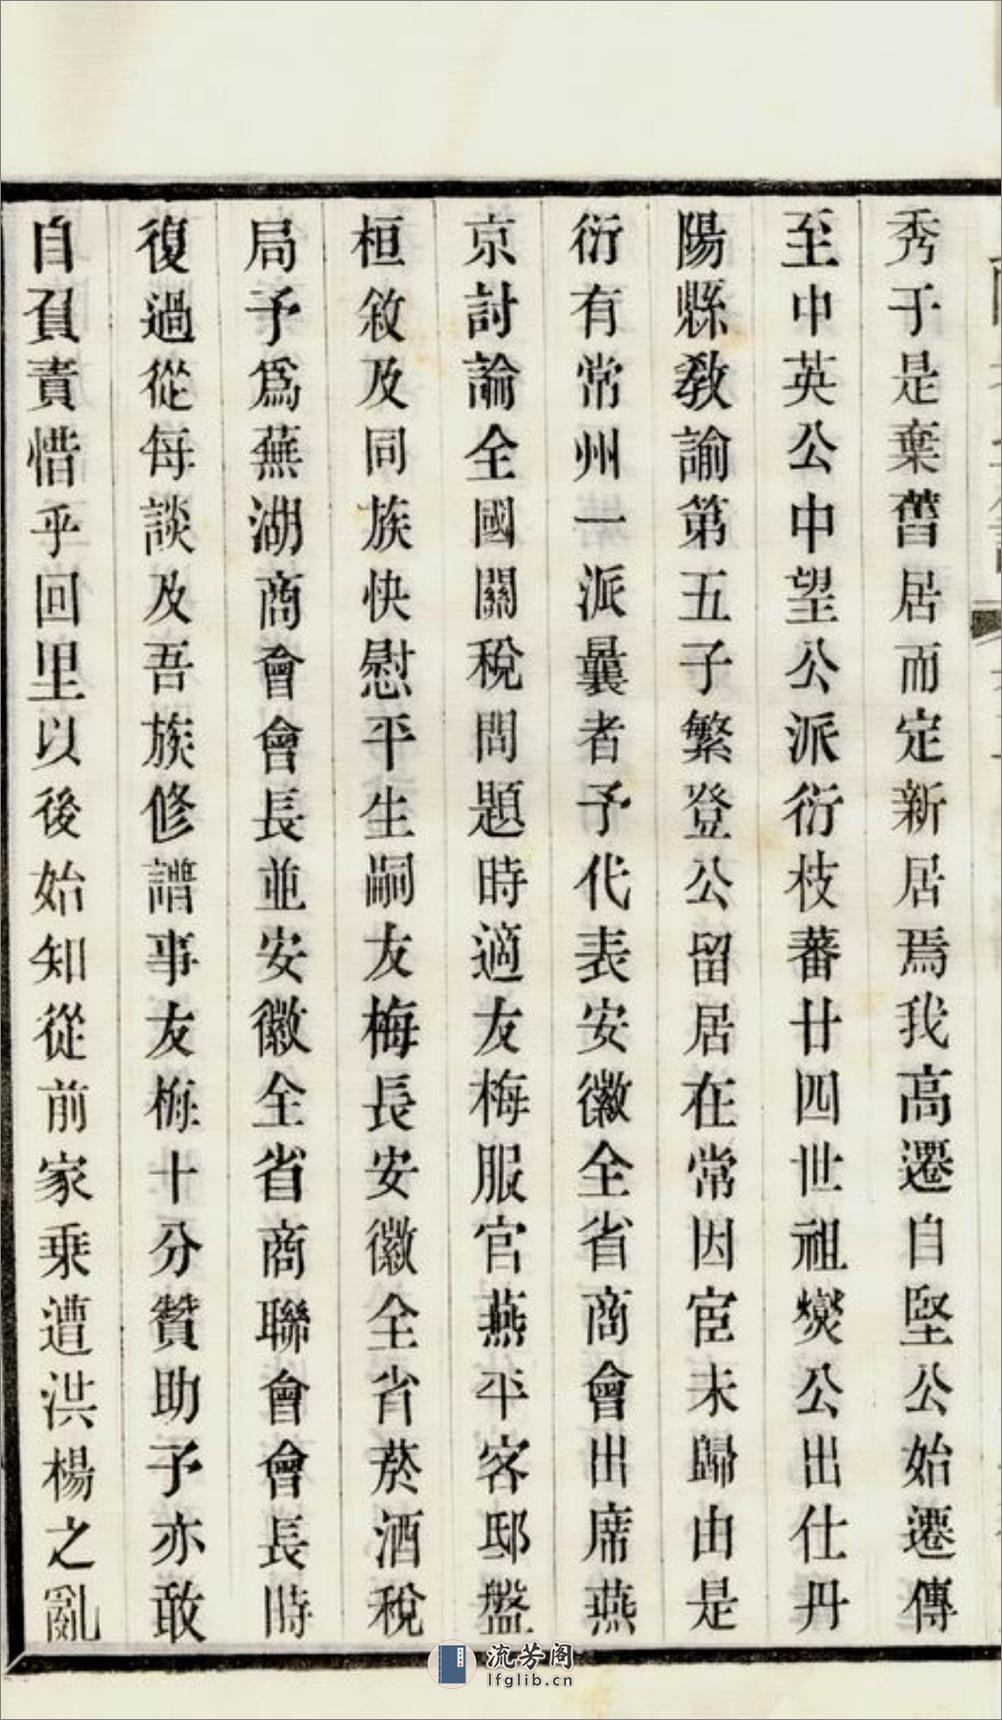 秀于是棄舊居而定新居焉我高遷自堅公始遷傳
至中英公中望公派衍枝蕃廿四世祖爕公出仕丹
陽縣教諭第五子繁登公留居在常因宦未歸由是
衍有常州一派曩者予代表安徽全省商會出席燕
京討論全國關稅問題時適友梅服官燕平客邸盤
桓敘及同族快慰平生嗣友梅長安徽全省菸酒稅
局予為蕪湖商會會長並安徽全省商聯會會長時
復過從每談及吾族修譜事友梅十分贊助予亦敢
自負責惜乎回里以後始知從前家乘遭洪楊之亂
流芳阁
lfglib.cn